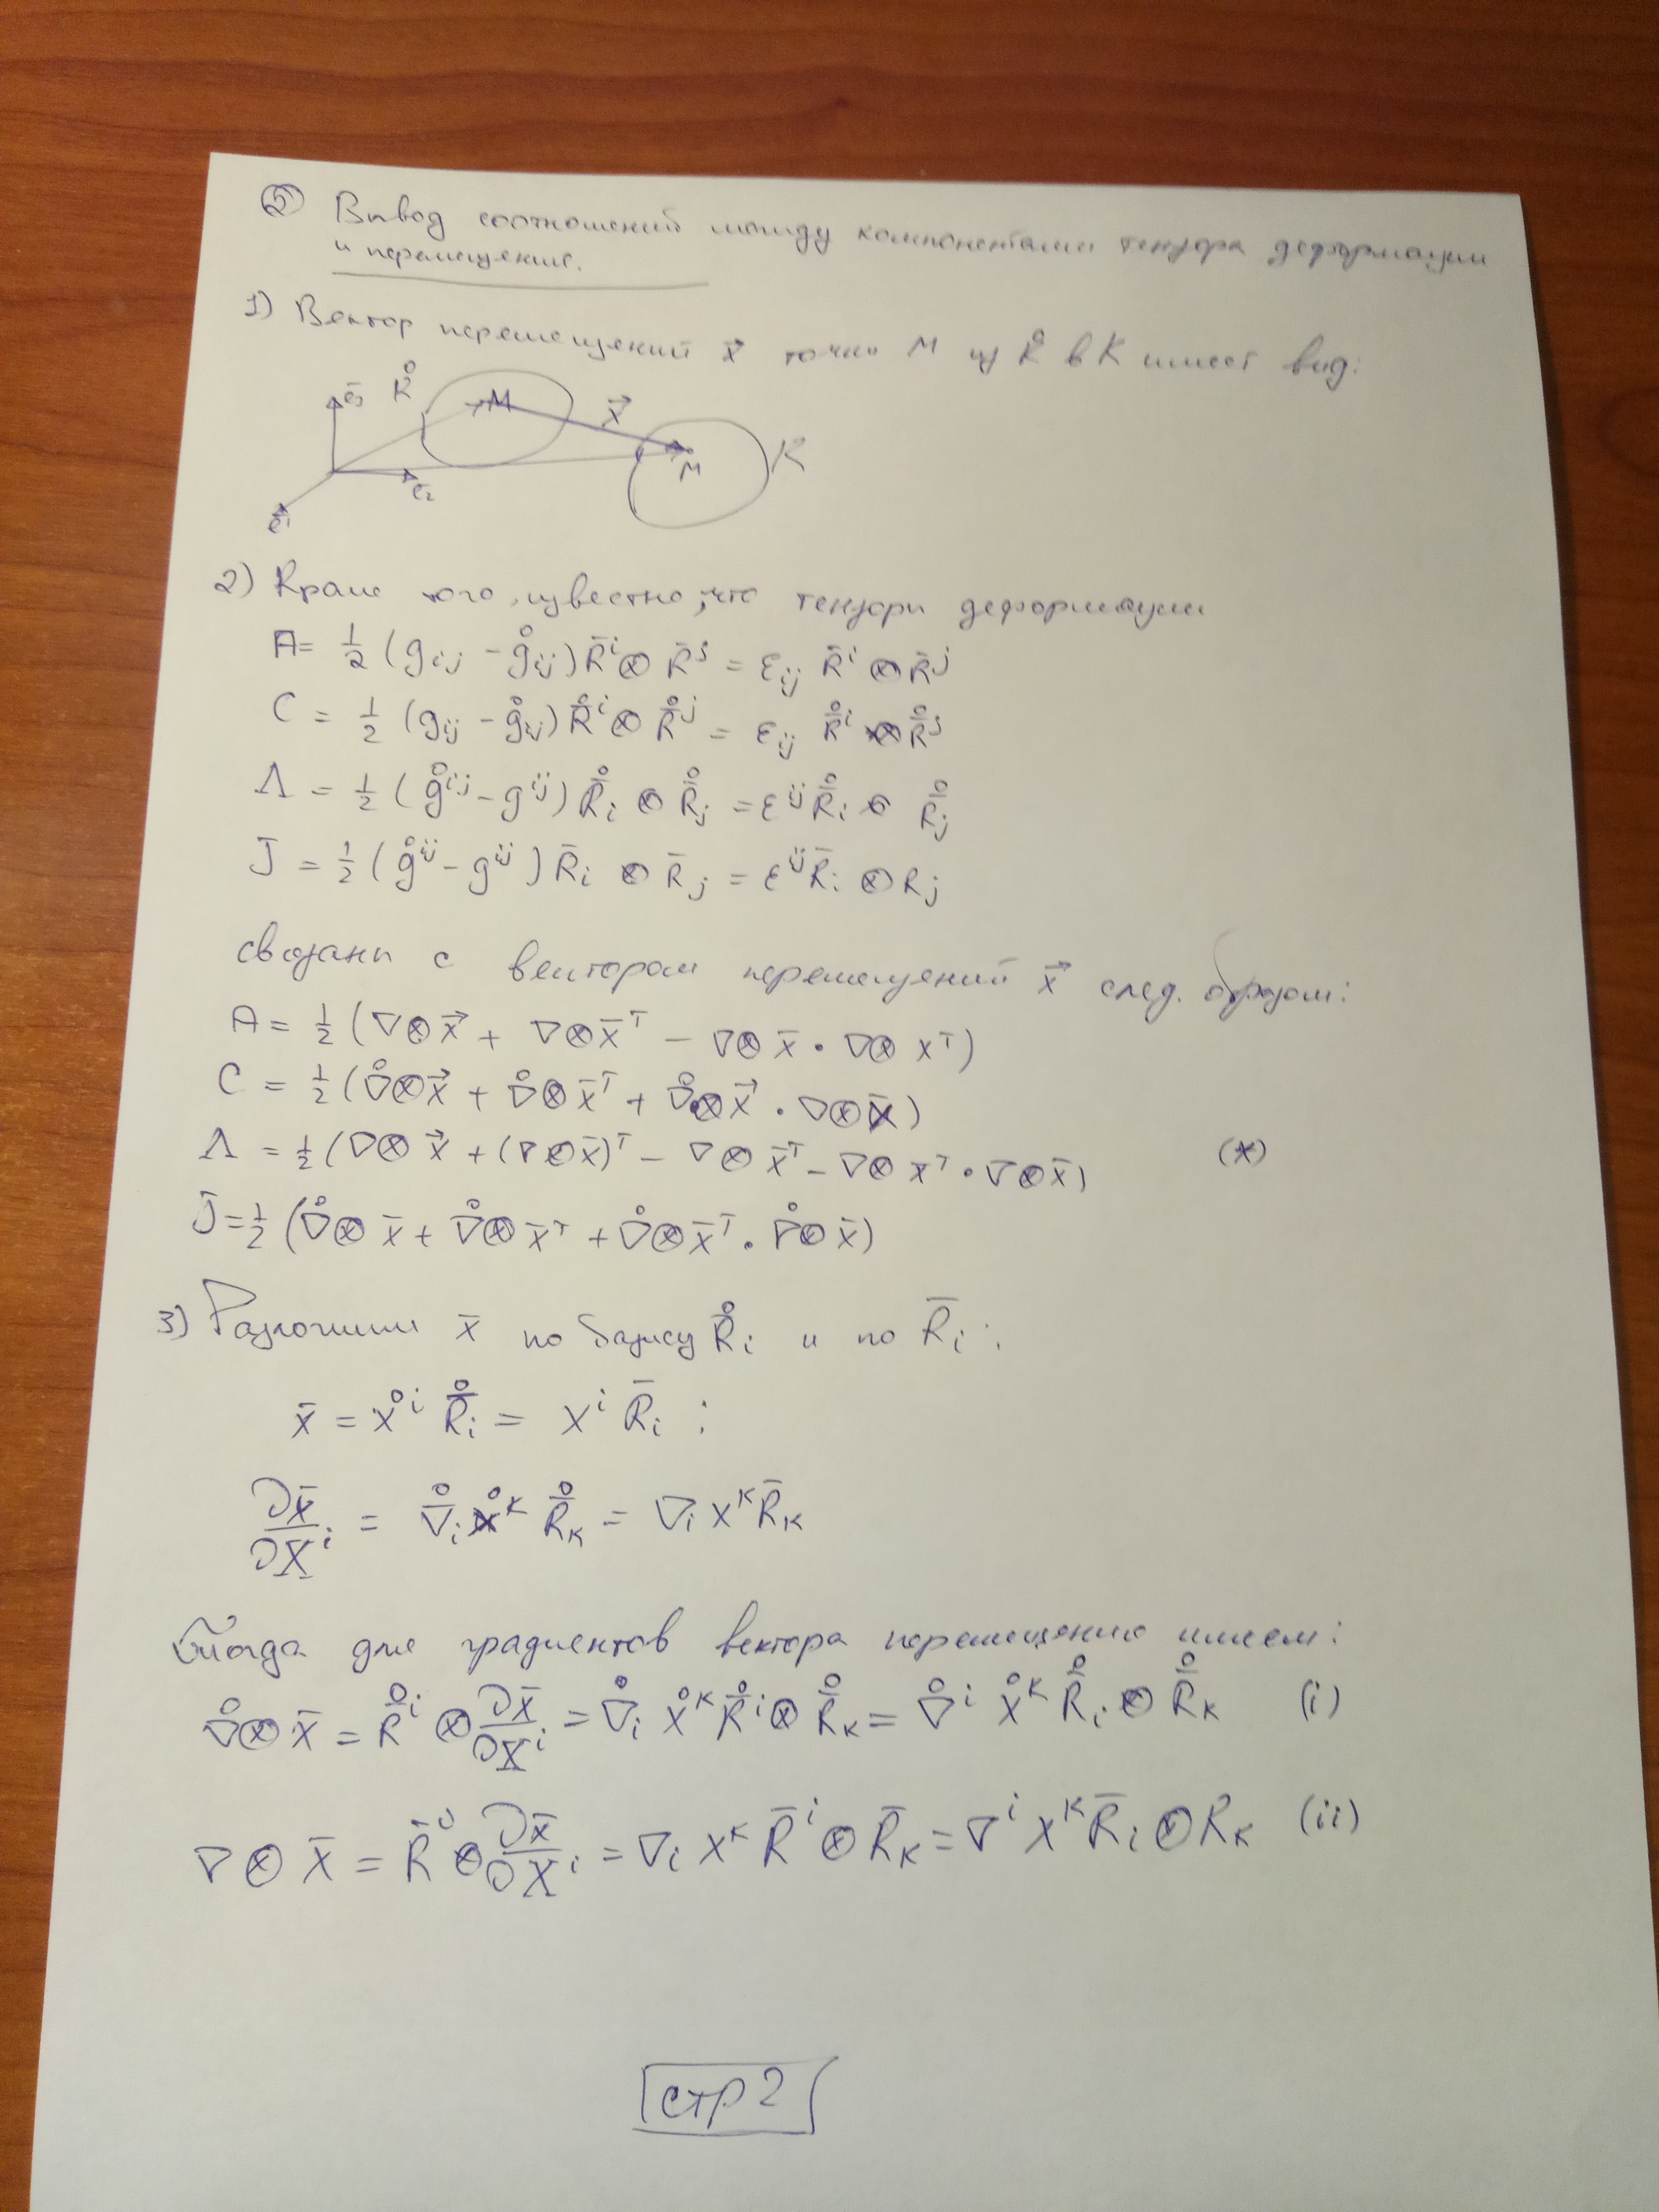 ② Вывод соотношений между компонентами тензора деформации
и перемещения.
1) Вектор перемещений x⃗ точки M из K̊ в K имеет вид:
K̊ M x⃗ M K
ē₃ ē₂ ē₁
2) Кроме того, известно, что тензоры деформации
A = 1/2 (g_ij - g̊_ij) R̄^i ⊗ R̄^j = ε_ij R̄^i ⊗ R̄^j
C = 1/2 (g_ij - g̊_ij) R̊̄^i ⊗ R̊̄^j = ε_ij R̊̄^i ⊗ R̊̄^j
Λ = 1/2 (g̊^ij - g^ij) R̊̄_i ⊗ R̊̄_j = ε^ij R̊̄_i ⊗ R̊̄_j
J = 1/2 (g̊^ij - g^ij) R̄_i ⊗ R̄_j = ε^ij R̄_i ⊗ R_j
связаны с вектором перемещений x⃗ след. образом:
A = 1/2 (∇⊗x⃗ + ∇⊗x̄^T - ∇⊗x̄ · ∇⊗x^T)
C = 1/2 (∇̊⊗x⃗ + ∇̊⊗x̄^T + ∇̊⊗x⃗ · ∇⊗x̄)
Λ = 1/2 (∇⊗x⃗ + (∇⊗x̄)^T - ∇⊗x̄^T - ∇⊗x^T · ∇⊗x̄) (*)
J = 1/2 (∇̊⊗x̄ + ∇̊⊗x̄^T + ∇̊⊗x̄^T · ∇̊⊗x̄)
3) Разложим x̄ по базису R̊̄_i и по R̄_i:
x̄ = x̊^i R̊̄_i = x^i R̄_i ;
∂x̄/∂X^i = ∇̊_i x̊^k R̊̄_k = ∇_i x^k R̄_k
Тогда для градиентов вектора перемещения имеем:
∇̊⊗x̄ = R̊̄^i ⊗ ∂x̄/∂X^i = ∇̊_i x̊^k R̊̄^i ⊗ R̊̄_k = ∇̊^i x̊^k R̊̄_i ⊗ R̊̄_k (i)
∇⊗x̄ = R̄^i ⊗ ∂x̄/∂X^i = ∇_i x^k R̄^i ⊗ R̄_k = ∇^i x^k R̄_i ⊗ R_k (ii)
стр 2